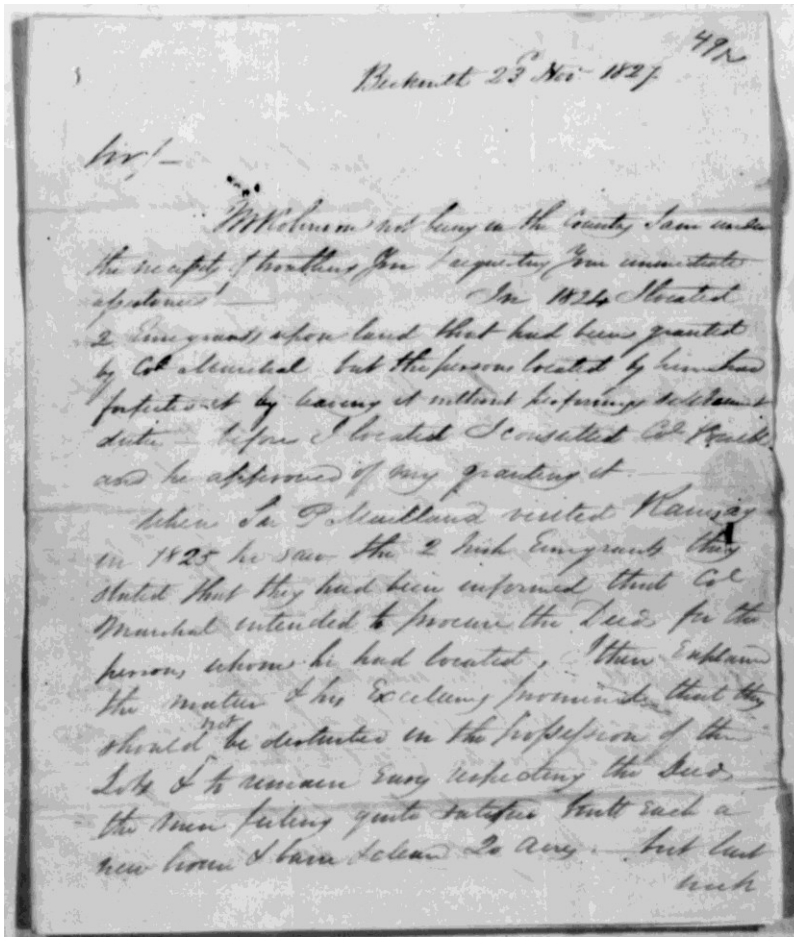 492
Beckwith 23d Nov. 1827
Sir/ —
Mr Robinson not being in the Country I am under
the necessity of troubling You & requesting Your immediate
assistance — In 1824 I located
2 Emigrants upon land that had been granted
by Col Marshal but the persons located by him had
forfeited it by leaving it without performing settlement
duties — before I located I consulted Col
and he approved of my granting it
When Sir P Maitland visited Ramsay
in 1825 he saw the 2 Irish Emigrants they
stated that they had been informed that Col
Marshal intended to procure the Deed for the
persons whom he had located, I then Explained
the matter & his Excellency promised that they
should not be disturbed in the possession of the
Lots & to remain Easy respecting the Deed
the men feeling quite satisfied built each a
new house & barn & clear 20 acres — but last
week